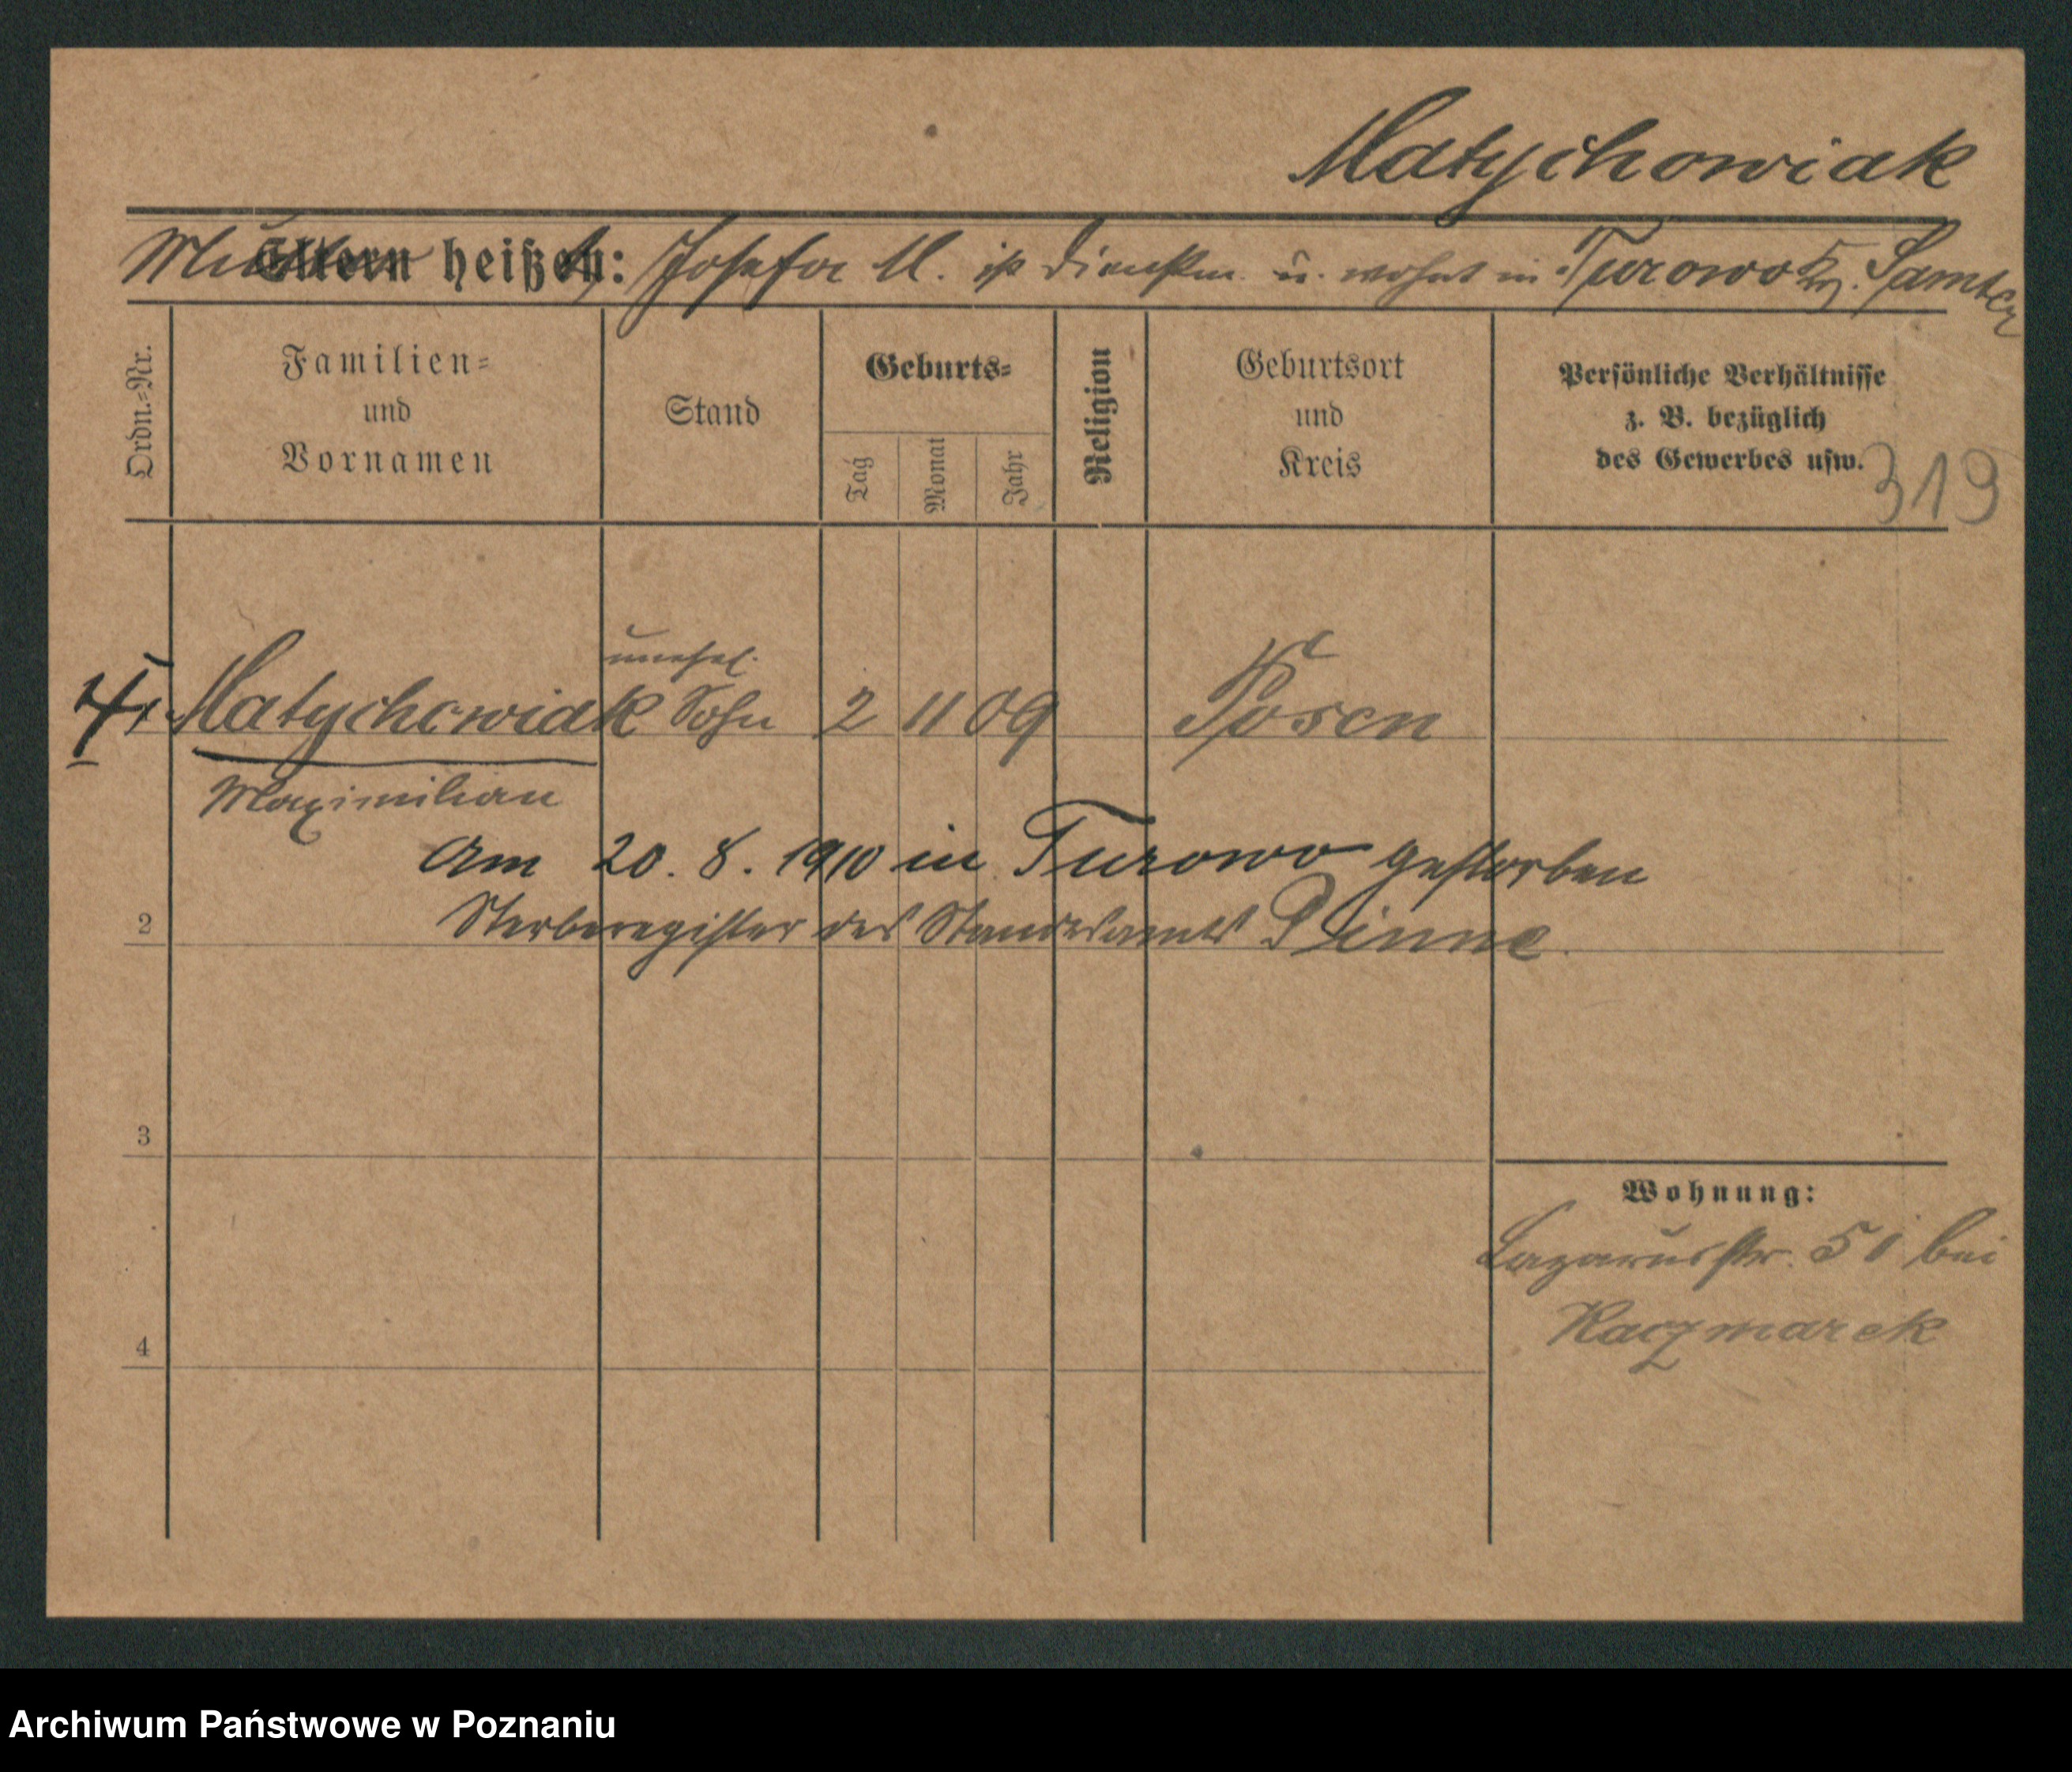 Matychowiak
Mutter heißt: Josefa M. ist Dienstm. u. wohnt in Turowo Krs. Samter
Ordn.=Nr.
Familien=
und
Vornamen
Stand
Geburts=
Tag
Monat
Jahr
Religion
Geburtsort
und
Kreis
Persönliche Verhältnisse
z. B. bezüglich
des Gewerbes usw.
319
unehel.
Matychowiak Sohn 2 11 09 Posen
Maximilian
Am 20. 8. 1910 in Turowo gestorben
2 Sterberegister des Standesamts Pinne.
3
Wohnung:
Lazarusstr. 51 bei
Kaczmarek
4
Archiwum Państwowe w Poznaniu